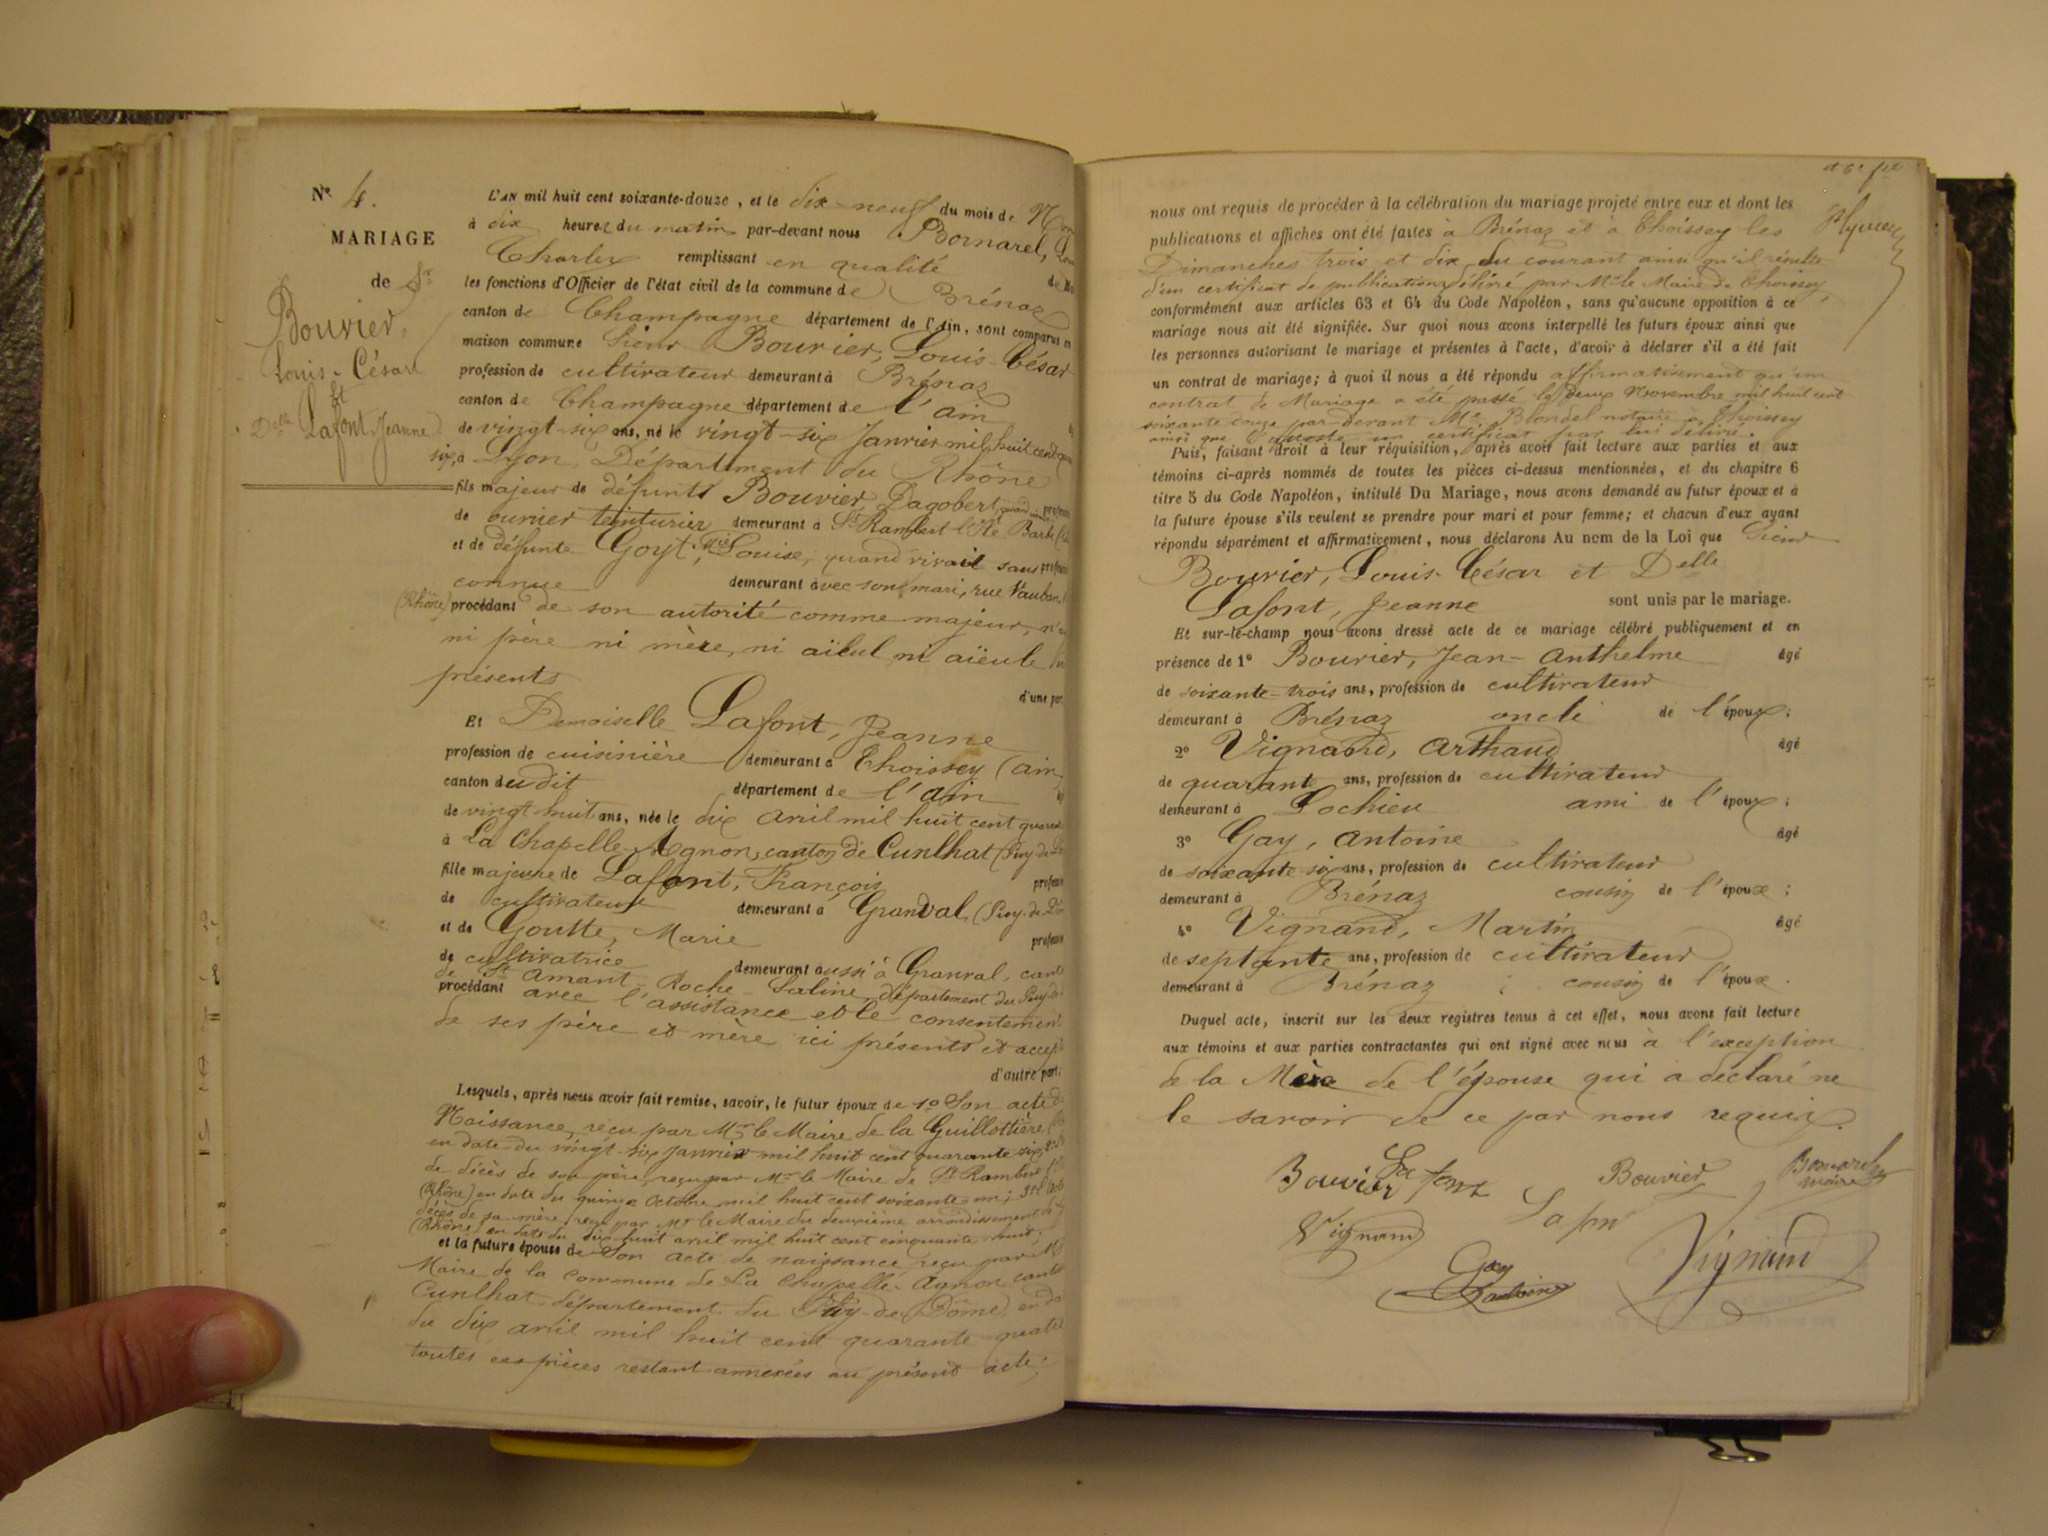 N° 4.
MARIAGE
de Sr
Bouvier,
Louis-César
Et
Delle Lafont, Jeanne
L'AN mil huit cent soixante-douze, et le dix-neuf du mois de
à dix heures du matin par-devant nous Bornarel,
Charles remplissant en qualité
les fonctions d'Officier de l'état civil de la commune de Brénaz
canton de Champagne département de l'Ain, sont comparus en
maison commune Sieur Bouvier, Louis-César
profession de cultivateur demeurant à Brénaz
canton de Champagne département de l'ain
de vingt-six ans, né le vingt-six Janvier mil huit cent
six, à Lyon, Département du Rhône
fils majeur de défunts Bouvier, Dagobert, quand vivait
de ouvrier teinturier demeurant à St Rambert l'Ile Barbe
et de défunte Goyt, Louise, quand vivait sans
connue demeurant avec son mari, rue Vauban,
(Rhône) procédant de son autorité comme majeur,
ni père ni mère, ni aïeul ni aïeule
présents
d'une part
Et Demoiselle Lafont, Jeanne
profession de cuisinière demeurant à Thoissey (ain)
canton dudit département de l'ain
de vingt-huit ans, née le dix avril mil huit cent
à La Chapelle-Agnon, canton de Cunlhat (Puy de
fille majeure de Lafont, François
de cultivateur demeurant à Granval, (Puy-de-
et de Goutte, Marie
de cultivatrice demeurant aussi à Granval,
de St Amant-Roche-Saline, département du Puy-de
procédant avec l'assistance et le consentement
de ses père et mère ici présents et
d'autre part;
Lesquels, après nous avoir fait remise, savoir, le futur époux de 1° Son acte de
Naissance, reçu par Mr le Maire de la Guillottière
en date du vingt-six Janvier mil huit cent quarante-six,
de décès de son père, reçu par Mr le Maire de St Rambert
(Rhône) en date du quinze Octobre mil huit cent soixante-un;
décès de sa mère, reçu par Mr le Maire du deuxième arrondissement
(Rhône) en date du dix-huit avril mil huit cent cinquante-huit;
et la future épouse de Son acte de naissance reçu par
Maire de la commune de La Chapelle-Agnon
Cunlhat, département du Puy-de-Dôme, en
du dix avril mil huit cent quarante-quatre
toutes ces pièces restant annexées au présent acte;
nous ont requis de procéder à la célébration du mariage projeté entre eux et dont les
publications et affiches ont été faites à Brénaz et à Thoissey les
Dimanches trois et dix du courant ainsi qu'il résulte
d'un certificat de publication délivré par Mr le Maire de Thoissey,
conformément aux articles 63 et 64 du Code Napoléon, sans qu'aucune opposition à ce
mariage nous ait été signifiée. Sur quoi nous avons interpellé les futurs époux ainsi que
les personnes autorisant le mariage et présentes à l'acte, d'avoir à déclarer s'il a été fait
un contrat de mariage; à quoi il nous a été répondu affirmativement qu'un
contrat de Mariage a été passé le deux Novembre mil huit cent
soixante douze par-devant Me Blondel notaire à Thoissey
ainsi que l'atteste un certificat par lui délivré.
Puis, faisant droit à leur réquisition, après avoir fait lecture aux parties et aux
témoins ci-après nommés de toutes les pièces ci-dessus mentionnées, et du chapitre 6
titre 5 du Code Napoléon, intitulé Du Mariage, nous avons demandé au futur époux et à
la future épouse s'ils veulent se prendre pour mari et pour femme; et chacun d'eux ayant
répondu séparément et affirmativement, nous déclarons Au nom de la Loi que Sieur
Bouvier, Louis-César et Delle
Lafont, Jeanne sont unis par le mariage.
Et sur-le-champ nous avons dressé acte de ce mariage célébré publiquement et en
présence de 1° Bouvier, Jean-Anthelme âgé
de soixante-trois ans, profession de cultivateur
demeurant à Brénaz oncle de l'époux;
2° Vignand, Arthaud âgé
de quarant ans, profession de cultivateur
demeurant à Lochieu ami de l'époux;
3° Gay, Antoine âgé
de soixante-six ans, profession de cultivateur
demeurant à Brénaz cousin de l'époux;
4° Vignand, Martin âgé
de septante ans, profession de cultivateur
demeurant à Brénaz; cousin de l'époux.
Duquel acte, inscrit sur les deux registres tenus à cet effet, nous avons fait lecture
aux témoins et aux parties contractantes qui ont signé avec nous à l'exception
de la Mère de l'épouse qui a déclaré ne
le savoir de ce par nous requis.
Bouvier Lafont Bouvier Bornarel
maire
Vignand Lafon Vignand
Gay
Antoine